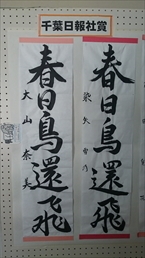 千葉日報社賞
春日鳥還飛
春日鳥還飛
大山奈美